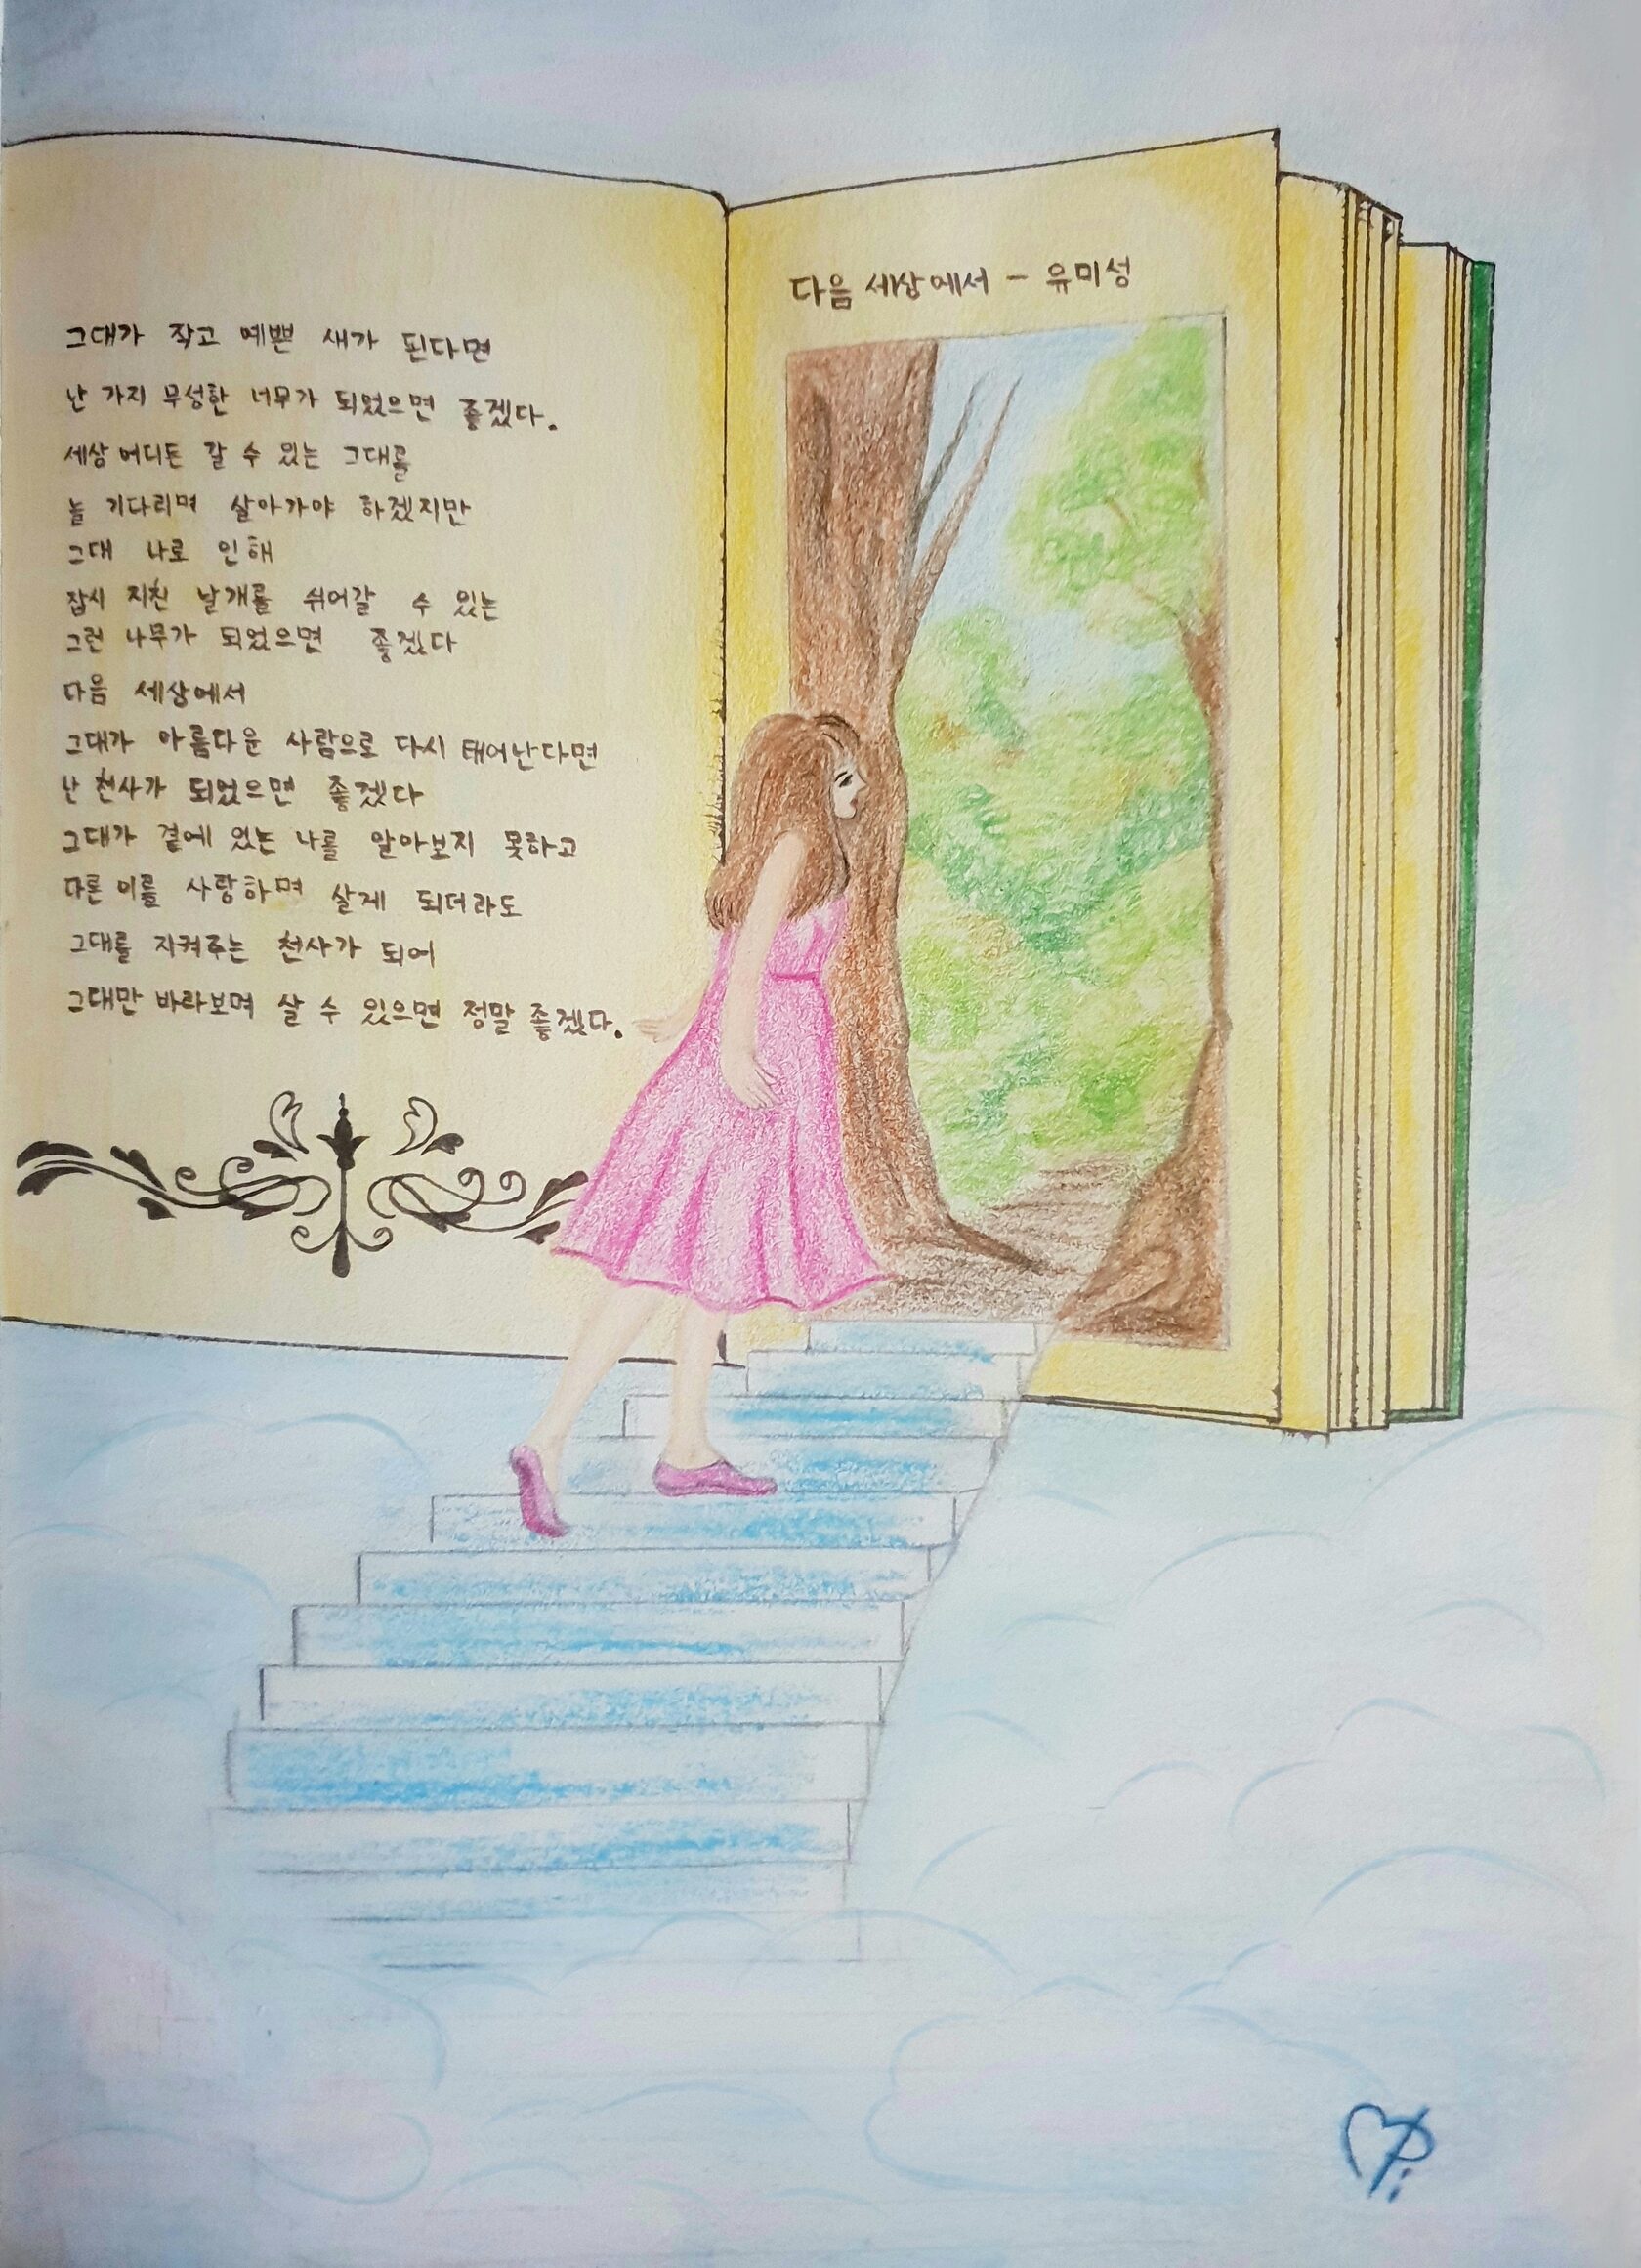 그대가 작고 예쁜 새가 된다면
난 가지 무성한 너무가 되었으면 좋겠다.
세상 어디든 갈 수 있는 그대를
늘 기다리며 살아가야 하겠지만
그대 나로 인해
잠시 지친 날개를 쉬어갈 수 있는
그런 나무가 되었으면 좋겠다
다음 세상에서
그대가 아름다운 사람으로 다시 태어난다면
난 천사가 되었으면 좋겠다
그대가 곁에 있는 나를 알아보지 못하고
다른 이를 사랑하며 살게 되더라도
그대를 지켜주는 천사가 되어
그대만 바라보며 살 수 있으면 정말 좋겠다.
다음 세상에서 - 유미성